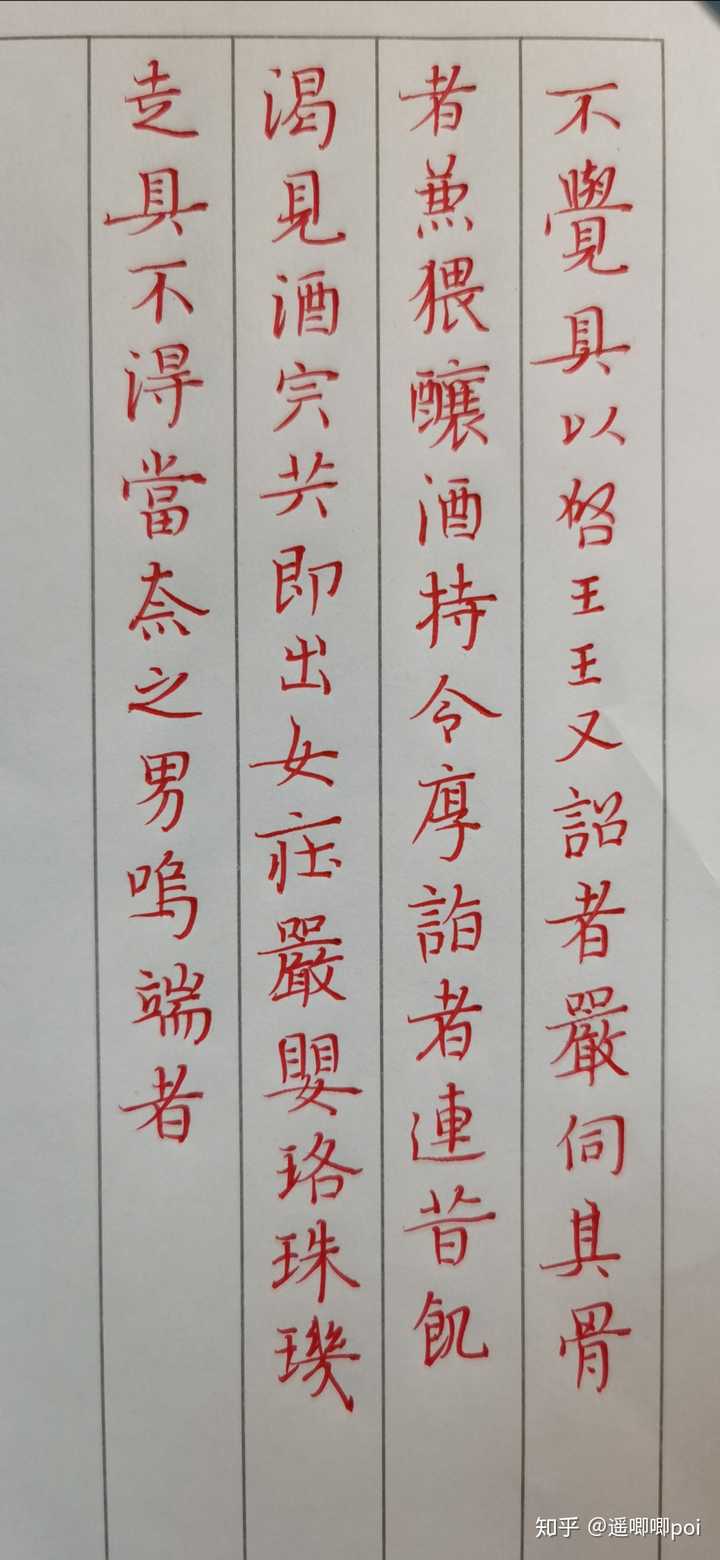 不覺具以啓王王又詔者嚴伺其骨
者兼猥釀酒持令厚詣者連昔飢
渴見酒宍共即出女莊嚴嬰珞珠璣
走具不得當柰之男嗚端者
知乎 @遥唧唧poi